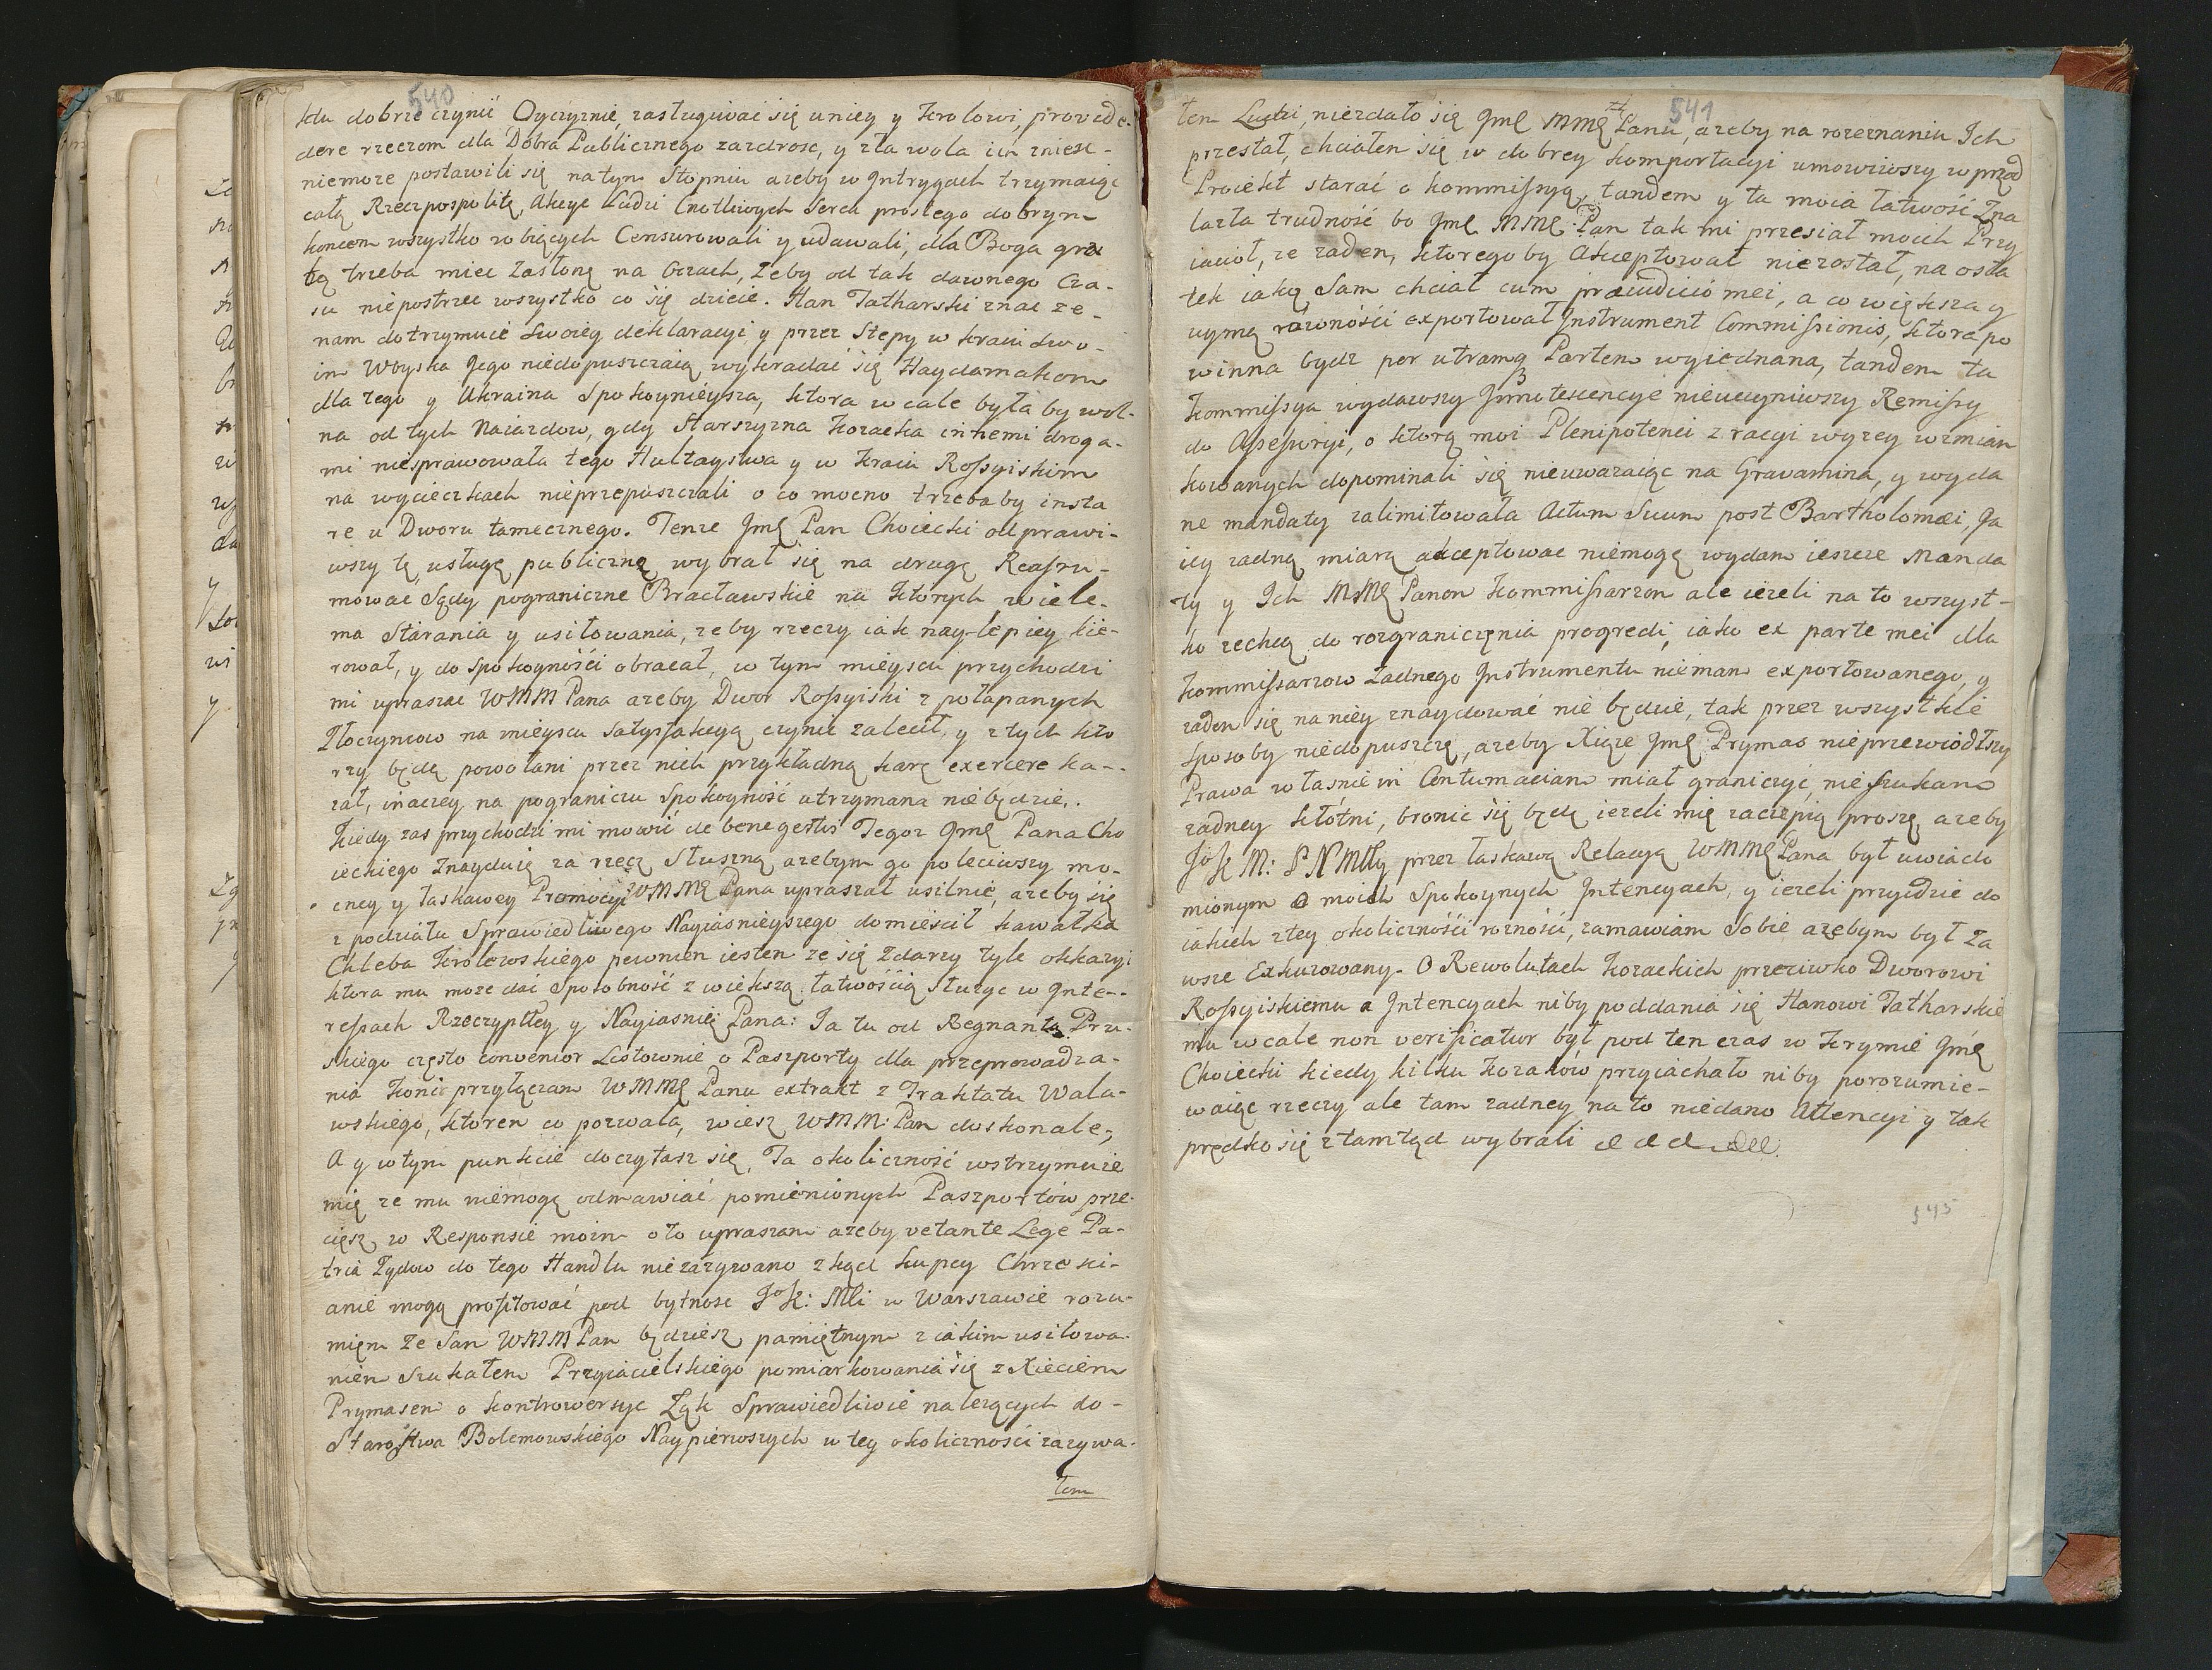 540
ktu dobrze czynić Oyczyznie, zasługiwać się u niey y Krolowi, provide-
dere rzeczom dla Dobra Publicznego zazdrosc, y zła wola im zniesc-
niemoze postawili się na tym Stopniu azeby w Jntrygach trzymaiąc
całą Rzeczpospolitę, Akcye Ludzi Cnotliwych Serca prostego dobrym
koncem wszystko robiących Censurowali y udawali, dla Boga gru
bą trzeba miec Zasłonę na Oczach, Zeby od tak dawnego Cza-
su niepostrzec wszystko co się dzieie. Han Tatharski znac ze-
nam dotrzymuie Swoiey deklaracyi y przez Stepy w kraiu Swo-
im Woyska Jego niedopuszczaią wykradać się Haydamakom
dla tego y Ukraina Spokoynieysza, ktora wcale była by wol-
na od tych Naiazdow, gdy Starszyzna kozacka innemi droga-
mi niesprawowała tego Hultaystwa y w kraiu Rossyiskim
na wycieczkach nieprzepuszczali o co mocno trzeba by insta
re u Dworu tamecznego. Tenze Jmę Pan Choiecki odprawi-
wszy tę usługę publiczną wybrał się na drugą Reassu-
mowac Sądy pograniczne Bracławskie na ktorych wiele-
ma Starania y usiłowania, zeby rzeczy iak nay-lepiey kie-
rował, y do Spokoyności obracał, w tym mieyscu przychodzi
mi upraszac WMM Pana azeby Dwor Rossyiski z połapanych
Złoczyncow na mieyscu Satysfakcyą czynic zalecił, y z tych kto
rzy będą powołani przez nich przykładną karę exercere ka-
zał, inaczey na pograniczu Spokoyność utrzymana niebędzie.
Kiedy zas przychodzi mi mowić de benegestis Tegoz Jmę Pana Cho
ieckiego Znayduię za rzecz Słuszną azebym go poleciwszy mo-
cney y łaskawey Promocyi WMMę Pana upraszał usilnie, azeby się
z podziału Sprawiedliwego Nayiasnieyszego domieścił kawałka
Chleba Krolewskiego pewnien iestem ze się Zdarzy tyle okkazyi
ktora mu moze dać Sposobność z wiekszą łatwością Słuzyc w Jnte-
ressach Rzeczypltey y Nayiasnię: Pana: Ja tu od Regnanta Pru-
skiego często convenior Listownie o Paszporty dla przeprowadza-
nia koni przyłączam WMMę Panu extrakt z Traktatu Wala-
wskiego, ktoren co pozwala, wiesz WMM: Pan doskonale,
A y w tym punkcie doczytasz się, Ta okoliczność wstrzymuie
mię ze mu niemogę odmawiać pomienionych Paszportów prze-
ciesz w Responsie moim o to upraszam azeby vetante Lege Pa-
tria Zydow do tego Handlu niezazywano zkąd kupcy Chrzesci-
anie mogą profitować pod bytnosc JoK: Mli w Warszawie rozu-
miem Ze Sam WMMPan będziesz pamiętnym z iakim usiłowa-
niem Szukałem Przyiacielskiego pomiarkowania się z Xięciem
Prymasem o kontrowersye Ląk Sprawiedliwie nalezących do-
Starostwa Bolemowskiego Naypierwszych w tey okoliczności zazywa-
łem
541
łem Ludzi, niezdało się Jmę MMę Panu, azeby na rozeznaniu Ich
przestał, chciałem się w dobrey komportacyi umowiwszy wprzod
Proiekt starać o kommissyą, tandem y ta moia łatwość Zna
lazła trudność bo Jmę MMę: Pan tak mi przesiał moich Przy
iacioł, ze zaden, ktorego by Akceptował niezostał, na osta
tek iaką Sam chciał cum praeiudicio mei, a co większa y
uymą równości exportował Jnstrument Commissionis, ktora po
winna bydz per utramq Partem wyiednana, tandem ta
kommissya wydawszy Jnnotescencye nieuczyniwszy Remissy
do Assessoryi, o ktorą moi Plenipotenci z racyi wyzey wzmian
kowanych dopominali się nieuwazaiąc na Gravamina, y wyda
ne mandaty zalimitowała Actum Suum post Bartholomaei, Ja
iey zadną miarą akceptowac niemogę wydam ieszcze Manda
ty y Ich MMę Panom kommissarzom ale iezeli na to wszyst-
ko zechcą do rozgraniczenia progredi, iako ex parte mei dla
kommissarzow zadnego Jnstrumentu niemam exportowanego, y
zaden się na niey znaydować nie będzie, tak przez wszystkie
Sposoby niedopuszczę, azeby Xiąze Jmę: Prymas nieprzewiodłszy
Prawa własnie in Contumaciam miał graniczyć nie szukam
zadney kłótni, bronic się będę iezeli mię zaczepią proszę azeby
JoK M: P N Mtły przez łaskawą Relacyą WMMę Pana był uwiado
mionym o moich Spokoynych Jntencyach, y iezeli przyidzie do
iakich z tey okoliczności roznosci, zamawiam Sobie azebym był Za
wsze Exkuzowany. O Rewolutach kozackich przeciwko Dworowi
Rossyiskiemu a Jntencyach niby poddania się Hanowi Tatharskie
mu wcale non verificatur był pod ten czas w Krymie Jmę
Choiecki kiedy kilku kozaków przyiachało niby porozumie-
waiąc rzeczy ale tam zadney na to niedano Attencyi y tak
prędko się ztamtąd wybrali
545